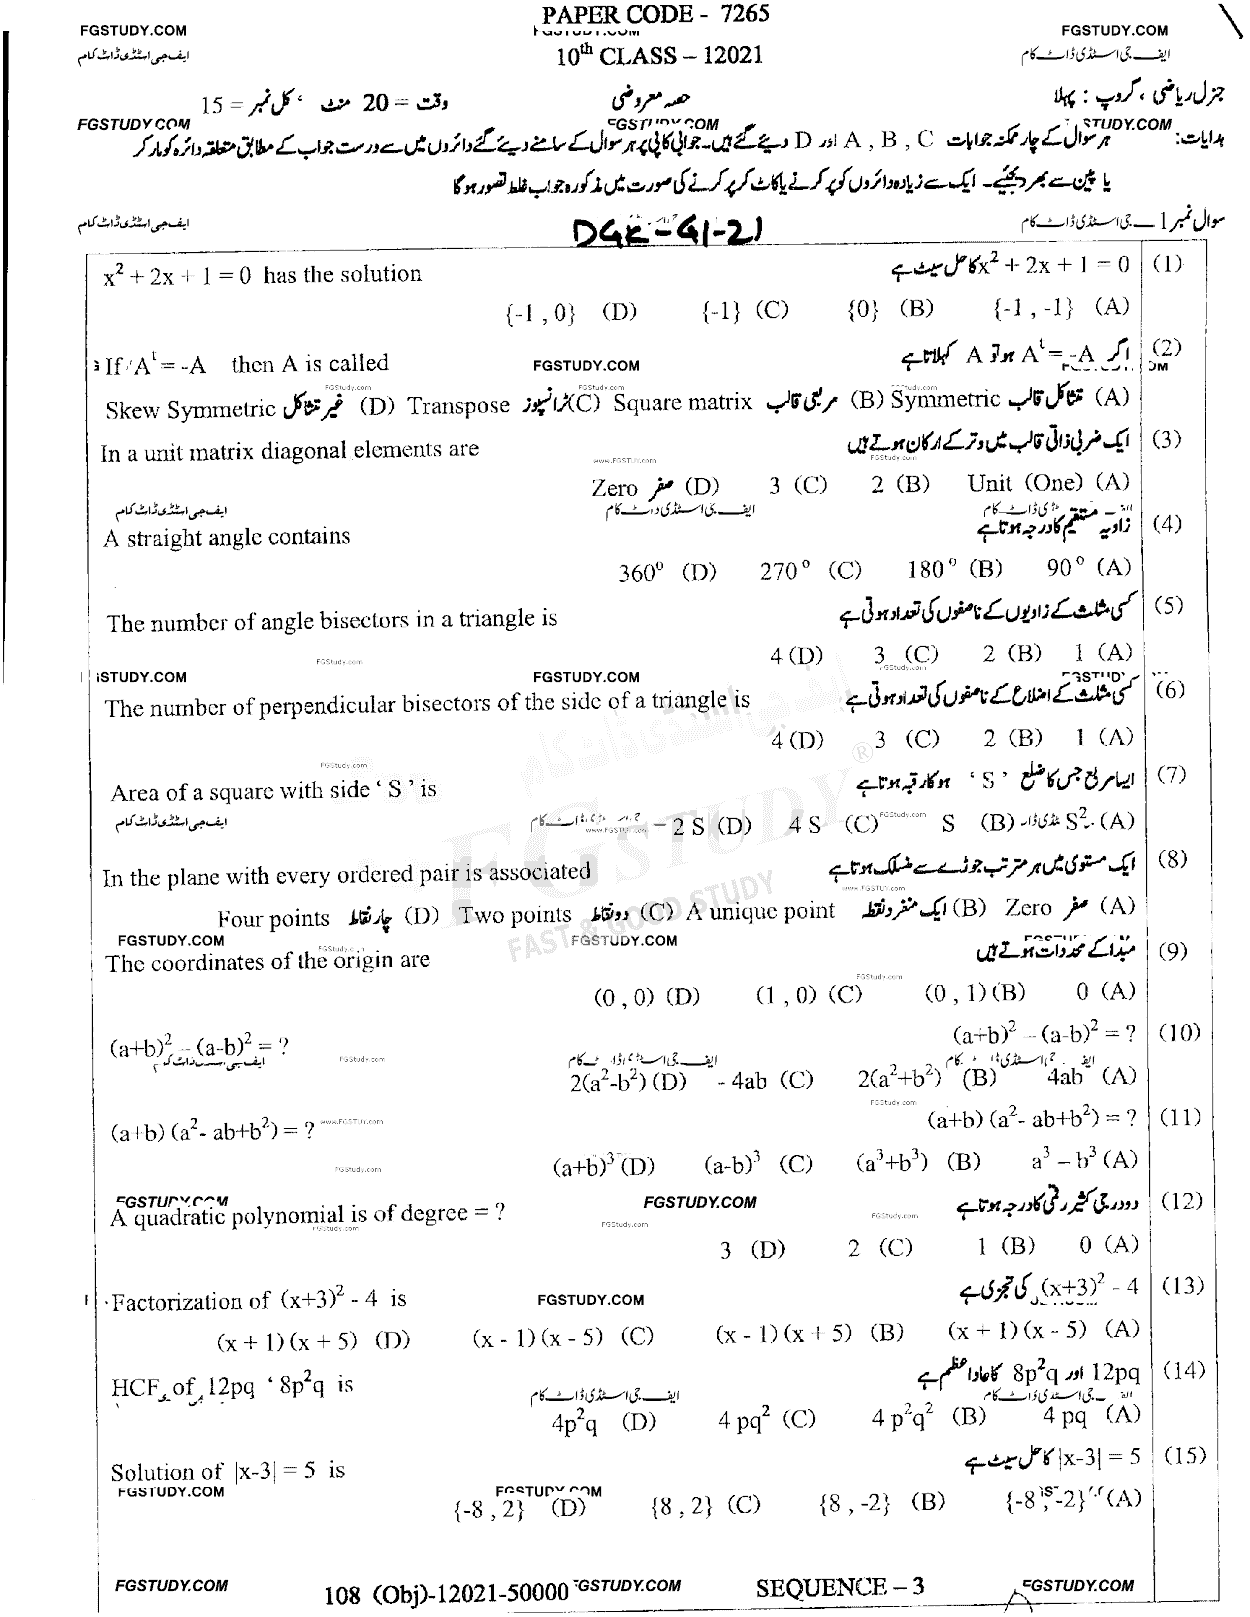 PAPER CODE - 7265
FGSTUDY.COM FGSTUDY.COM FGSTUDY.COM
ایف جی اسٹڈی ڈاٹ کام 10th CLASS – 12021 ایف جی اسٹڈی ڈاٹ کام
جنرل ریاضی ، گروپ : پہلا حصہ معروضی وقت = 20 منٹ ، کل نمبر = 15
FGSTUDY.COM FGSTUDY.COM STUDY.COM
ہدایات: ہر سوال کے چار ممکنہ جوابات A , B , C اور D دیئے گئے ہیں۔ جوابی کاپی پر ہر سوال کے سامنے دیئے گئے دائروں میں سے درست جواب کے مطابق متعلقہ دائرہ کو مارکر
یا پین سے بھر دیجئے۔ ایک سے زیادہ دائروں کو پر کرنے یا کاٹ کر پر کرنے کی صورت میں مذکورہ جواب غلط تصور ہوگا
سوال نمبر 1 جی اسٹڈی ڈاٹ کام DGK-G1-21 ایف جی اسٹڈی ڈاٹ کام
x² + 2x + 1 = 0 has the solution x² + 2x + 1 = 0 کا حل سیٹ ہے (1)
{-1 , 0} (D) {-1} (C) {0} (B) {-1 , -1} (A)
If Aᵗ = -A then A is called FGSTUDY.COM اگر Aᵗ = -A ہو تو A کہلاتا ہے (2)
Skew Symmetric غیر متشاکل (D) Transpose ٹرانسپوز (C) Square matrix مربعی قالب (B) Symmetric متشاکل قالب (A)
In a unit matrix diagonal elements are ایک ضربی ذاتی قالب میں وتر کے ارکان ہوتے ہیں (3)
Zero صفر (D) 3 (C) 2 (B) Unit (One) (A)
ایف جی اسٹڈی ڈاٹ کام ایف جی اسٹڈی ڈاٹ کام
A straight angle contains زاویہ مستقیم کا درجہ ہوتا ہے (4)
360° (D) 270° (C) 180° (B) 90° (A)
The number of angle bisectors in a triangle is کسی مثلث کے زاویوں کے ناصفوں کی تعداد ہوتی ہے (5)
4 (D) 3 (C) 2 (B) 1 (A)
STUDY.COM FGSTUDY.COM
The number of perpendicular bisectors of the side of a triangle is کسی مثلث کے اضلاع کے ناصفوں کی تعداد ہوتی ہے (6)
4 (D) 3 (C) 2 (B) 1 (A)
Area of a square with side ‘ S ’ is ایسا مربع جس کا ضلع ‘ S ’ ہو کا رقبہ ہوتا ہے (7)
ایف جی اسٹڈی ڈاٹ کام – 2 S (D) 4 S (C) S (B) S² (A)
In the plane with every ordered pair is associated ایک مستوی میں ہر مترتب جوڑے سے منسلک ہوتا ہے (8)
Four points چار نقاط (D) Two points دو نقاط (C) A unique point ایک منفرد نقطہ (B) Zero صفر (A)
FGSTUDY.COM FGSTUDY.COM
FGSTUDY
FAST & GOOD STUDY
The coordinates of the origin are مبدا کے محددات ہوتے ہیں (9)
(0 , 0) (D) (1 , 0) (C) (0 , 1) (B) 0 (A)
(a+b)² – (a-b)² = ? (a+b)² – (a-b)² = ? (10)
2(a²-b²) (D) - 4ab (C) 2(a²+b²) (B) 4ab (A)
(a+b) (a²- ab+b²) = ? (a+b) (a²- ab+b²) = ? (11)
(a+b)³ (D) (a-b)³ (C) (a³+b³) (B) a³ – b³ (A)
FGSTUDY.COM FGSTUDY.COM
A quadratic polynomial is of degree = ? دو درجی کثیر رقمی کا درجہ ہوتا ہے (12)
3 (D) 2 (C) 1 (B) 0 (A)
Factorization of (x+3)² - 4 is FGSTUDY.COM (x+3)² - 4 کی تجزی ہے (13)
(x + 1) (x + 5) (D) (x - 1) (x - 5) (C) (x - 1) (x + 5) (B) (x + 1) (x - 5) (A)
HCF of 12pq ‘ 8p²q is 12pq اور 8p²q کا عاد اعظم ہے (14)
4p²q (D) 4 pq² (C) 4 p²q² (B) 4 pq (A)
Solution of |x-3| = 5 is |x-3| = 5 کا حل سیٹ ہے (15)
FGSTUDY.COM FGSTUDY.COM
{-8 , 2} (D) {8 , 2} (C) {8 , -2} (B) {-8 , -2} (A)
FGSTUDY.COM 108 (Obj)-12021-50000 FGSTUDY.COM SEQUENCE – 3 FGSTUDY.COM